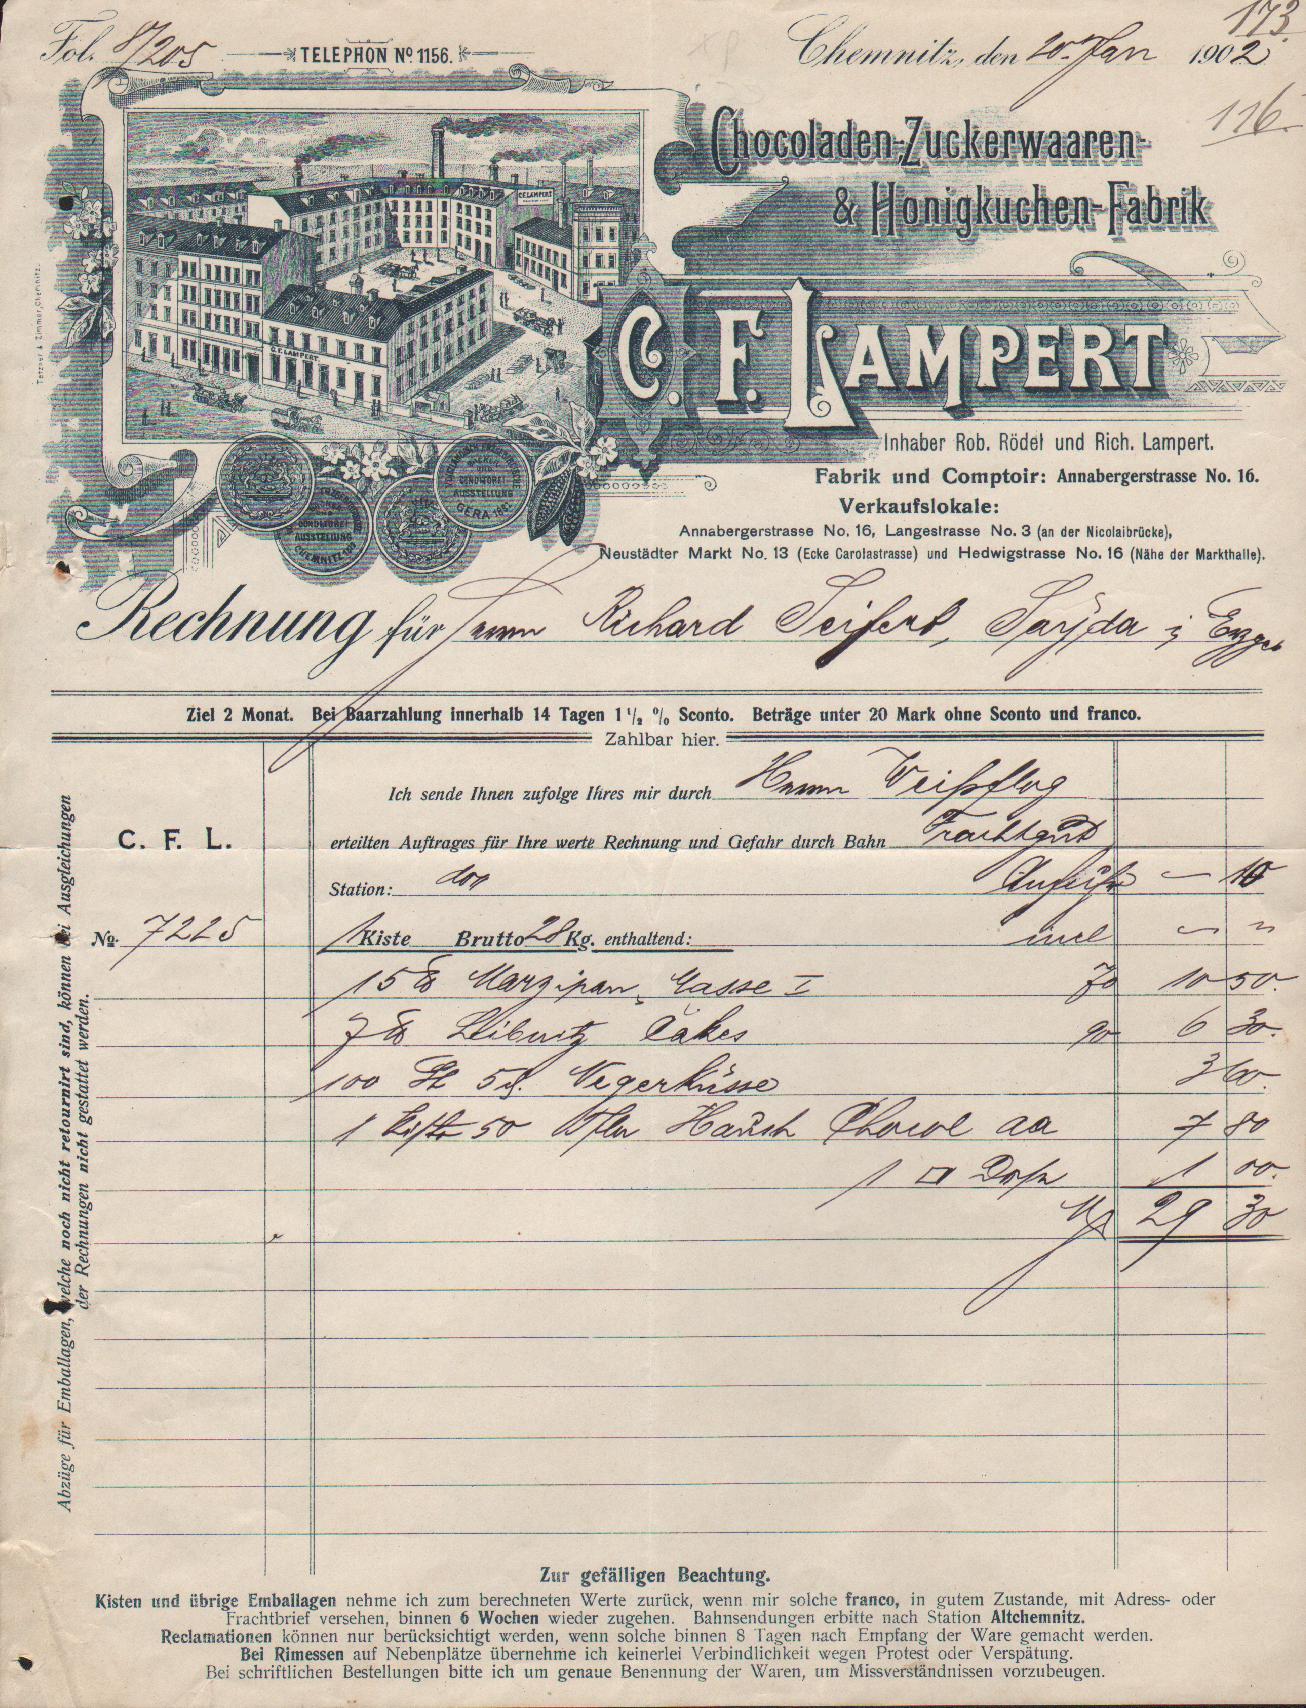 173.
Fol. 8/205
TELEPHON No. 1156.
Chemnitz, den 20. Jan 1902
116.
Chocoladen-Zuckerwaaren-
& Honigkuchen-Fabrik
C. F. LAMPERT
C. F. LAMPERT
C. F. LAMPERT
Inhaber Rob. Rödel und Rich. Lampert.
Fabrik und Comptoir: Annabergerstrasse No. 16.
Verkaufslokale:
Annabergerstrasse No. 16, Langestrasse No. 3 (an der Nicolaibrücke),
Neustädter Markt No. 13 (Ecke Carolastrasse) und Hedwigstrasse No. 16 (Nähe der Markthalle).
Rechnung für Herrn Richard Seifert, Sayda i Erzgeb
Ziel 2 Monat. Bei Baarzahlung innerhalb 14 Tagen 1 1/2 % Sconto. Beträge unter 20 Mark ohne Sconto und franco.
Zahlbar hier.
Ich sende Ihnen zufolge Ihres mir durch Herrn Weißflog
C. F. L.
erteilten Auftrages für Ihre werte Rechnung und Gefahr durch Bahn Frachtgut
Station: do Anfuhr — 10
No. 7225
1 Kiste Brutto 28 Kg. enthaltend: incl
15 ℔ Marzipan Masse I 70 10 50.
7 ℔ Leibnitz Cakes 90 6 30.
100 St 5 Negerküsse 3 60.
1 Kiste 50 Haush Chocol aa 7 80
1 Dose 1 00.
M 29 30
Abzüge für Emballagen, welche noch nicht retournirt sind, können bei Ausgleichungen
der Rechnungen nicht gestattet werden.
Zur gefälligen Beachtung.
Kisten und übrige Emballagen nehme ich zum berechneten Werte zurück, wenn mir solche franco, in gutem Zustande, mit Adress- oder
Frachtbrief versehen, binnen 6 Wochen wieder zugehen. Bahnsendungen erbitte nach Station Altchemnitz.
Reclamationen können nur berücksichtigt werden, wenn solche binnen 8 Tagen nach Empfang der Ware gemacht werden.
Bei Rimessen auf Nebenplätze übernehme ich keinerlei Verbindlichkeit wegen Protest oder Verspätung.
Bei schriftlichen Bestellungen bitte ich um genaue Benennung der Waren, um Missverständnissen vorzubeugen.